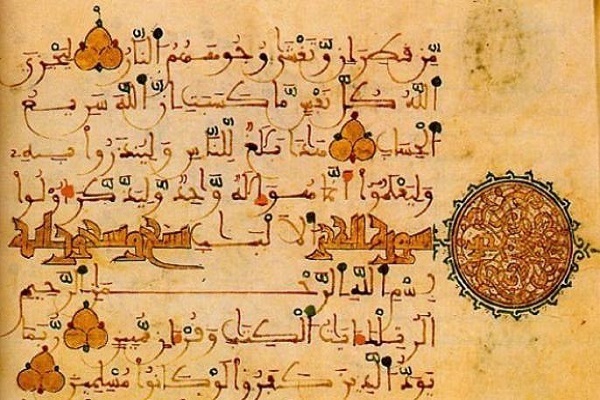 مِّن قَطِرَانٍ وَّتَغْشَىٰ وُجُوهَهُمُ النَّارُ لِيَجْزِيَ
اللَّهُ كُلَّ نَفْسٍ مَّا كَسَبَتْ إِنَّ اللَّهَ سَرِيعُ
الْحِسَابِ هَٰذَا بَلَٰغٌ لِّلنَّاسِ وَلِيُنذَرُوا بِهِ
وَلِيَعْلَمُوا أَنَّمَا هُوَ إِلَٰهٌ وَّاحِدٌ وَّلِيَذَّكَّرَ أُولُوا
سورة الحجر الْأَلْبَٰبِ تسع وتسعون آية
بِسْمِ اللَّهِ الرَّحْمَٰنِ الرَّحِيمِ
الر تِلْكَ ءَايَٰتُ الْكِتَٰبِ وَقُرْءَانٍ مُّبِينٍ رُّبَمَا
يَوَدُّ الَّذِينَ كَفَرُوا لَوْ كَانُوا مُسْلِمِينَ